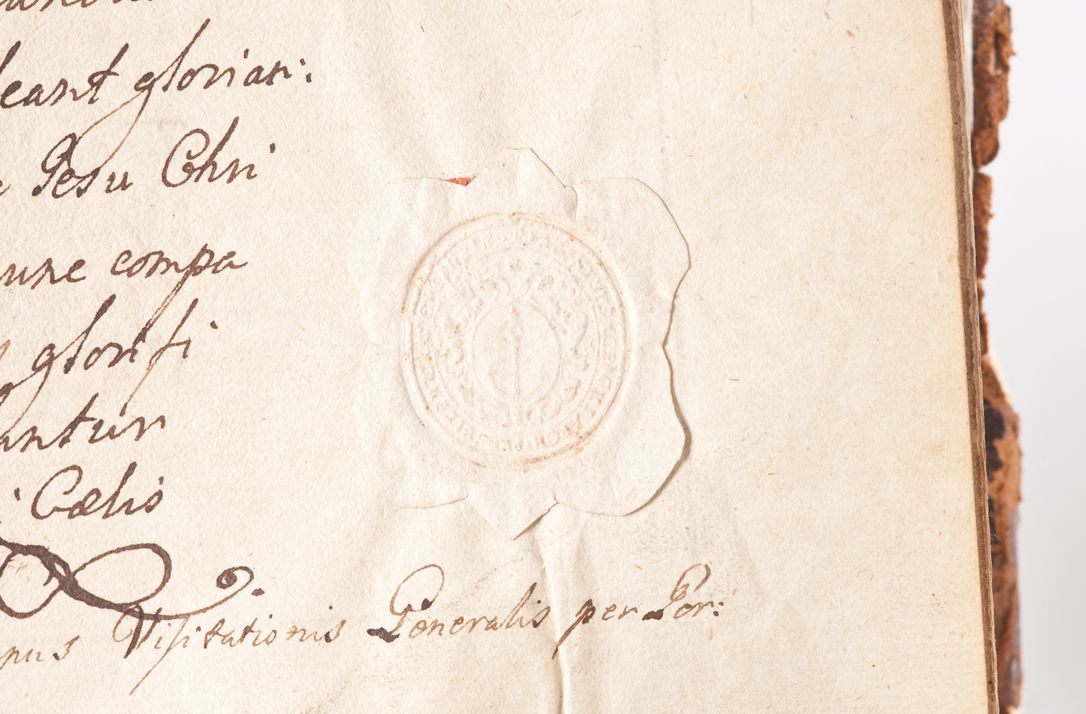 eant gloriari:
Jesu Chri
une compa
glorifi
antur
Cælis
pus Visitationis Generalis per Por: